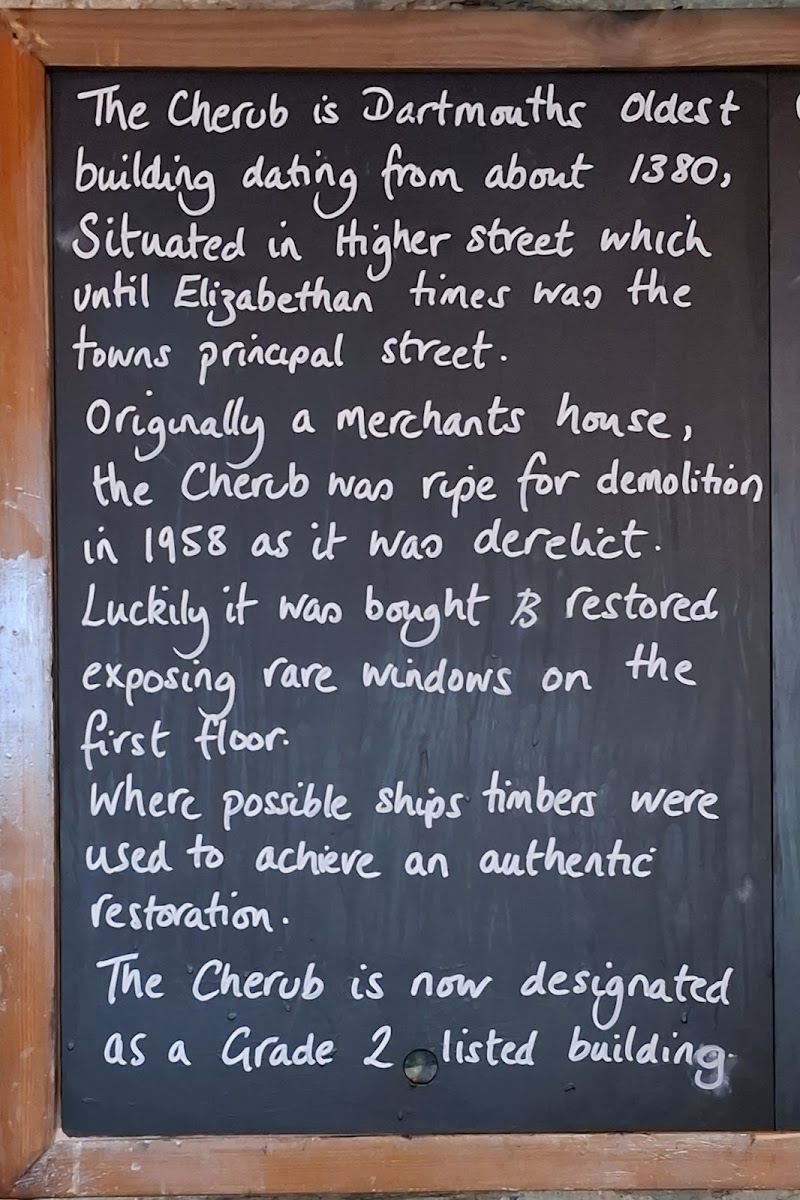 The Cherub is Dartmouths Oldest
building dating from about 1380,
Situated in Higher street which
until Elizabethan times was the
towns principal street.
Originally a merchants house,
the Cherub was ripe for demolition
in 1958 as it was derelict.
Luckily it was bought & restored
exposing rare windows on the
first floor.
Where possible ships timbers were
used to achieve an authentic
restoration.
The Cherub is now designated
as a Grade 2 listed building.